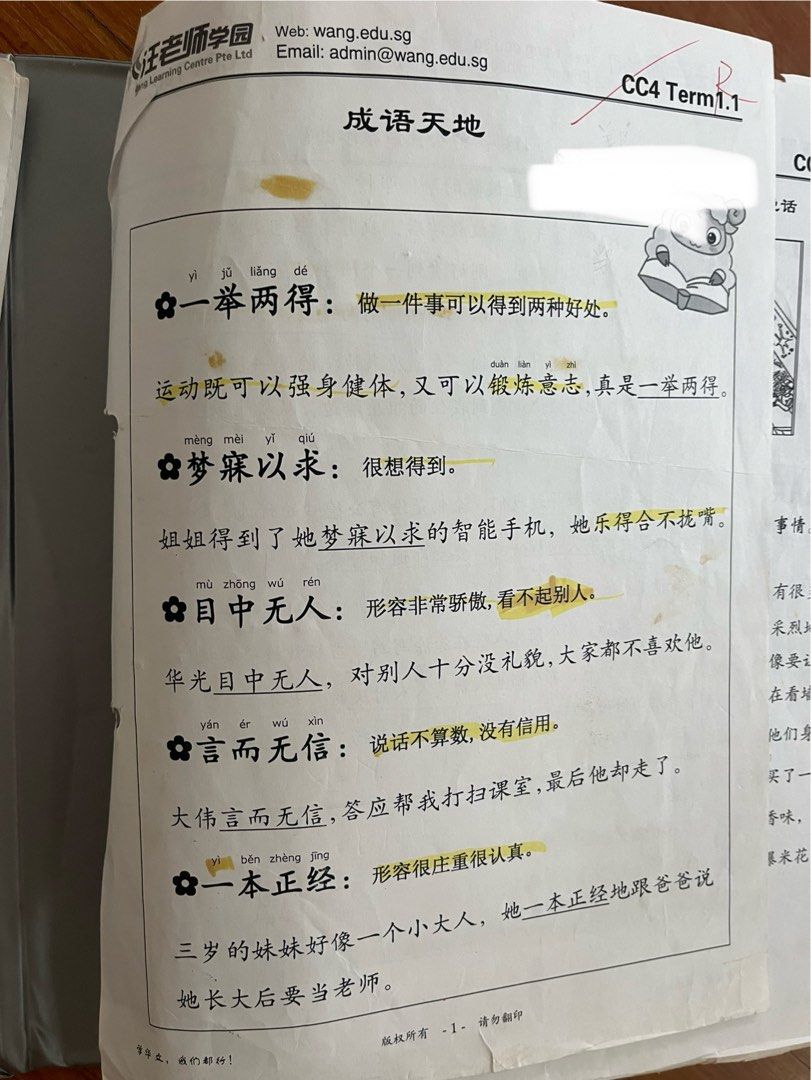 汪老师学园
Wang Learning Centre Pte Ltd
Web: wang.edu.sg
Email: admin@wang.edu.sg
CC4 Term1.1
R
成语天地
yì jǔ liǎng dé
一举两得：做一件事可以得到两种好处。
duàn liàn yì zhì
运动既可以强身健体，又可以锻炼意志，真是一举两得。
mèng mèi yǐ qiú
梦寐以求：很想得到。
姐姐得到了她梦寐以求的智能手机，她乐得合不拢嘴。
mù zhōng wú rén
目中无人：形容非常骄傲，看不起别人。
华光目中无人，对别人十分没礼貌，大家都不喜欢他。
yán ér wú xìn
言而无信：说话不算数，没有信用。
大伟言而无信，答应帮我打扫课室，最后他却走了。
yì běn zhèng jīng
一本正经：形容很庄重很认真。
三岁的妹妹好像一个小大人，她一本正经地跟爸爸说
她长大后要当老师。
版权所有 - 1 - 请勿翻印
学华文，我们都行！
事情。
有很
采烈地
像要
在看
他们身
买了一
香味，
爆米花